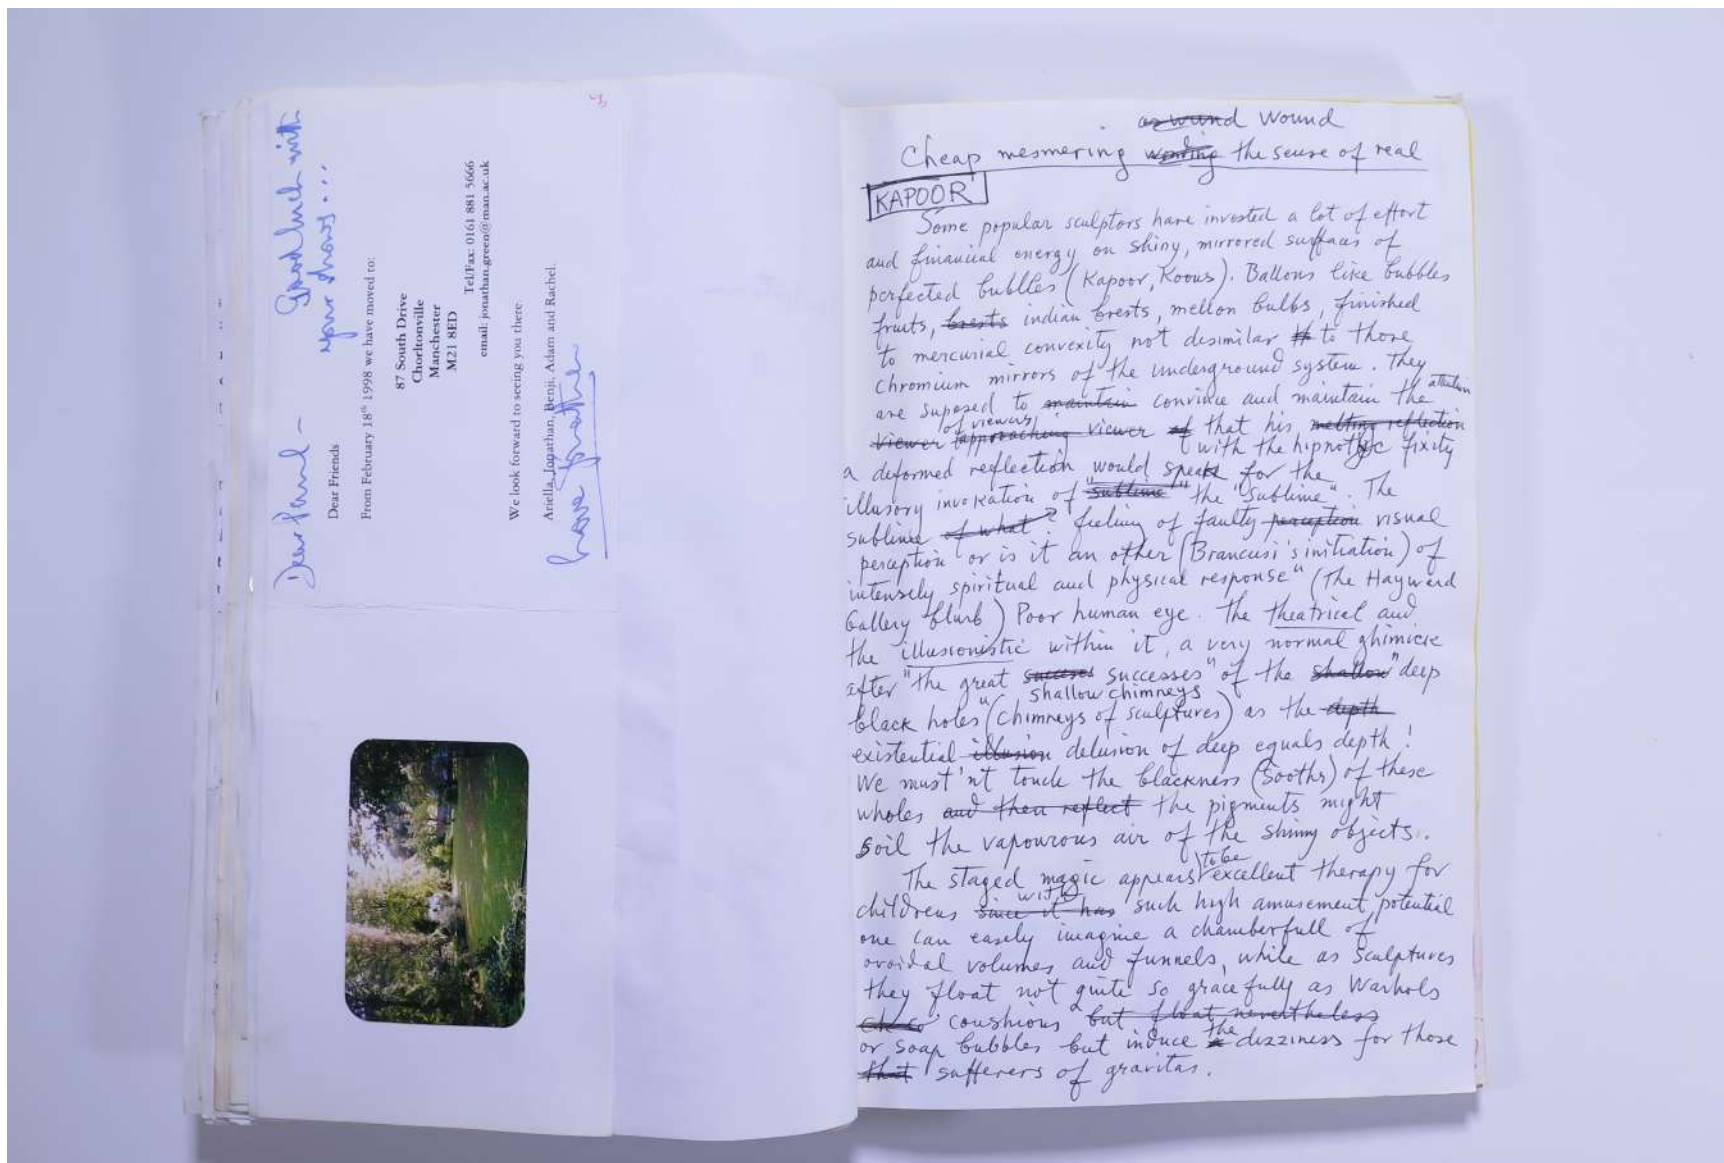 Dear Paul –
Good luck with
your shows...
Dear Friends
From February 18th 1998 we have moved to:
87 South Drive
Chorltonville
Manchester
M21 8ED
Tel/Fax: 0161 881 5666
email: jonathan.green@man.ac.uk
We look forward to seeing you there.
Ariella, Jonathan, Benji, Adam and Rachel.
Love Jonathan
as wund Wound
Cheap mesmering wonding the sense of real
KAPOOR
Some popular sculptors have invested a lot of effort
and financial energy on shiny, mirrored surfaces of
perfected bubbles (Kapoor, Koons). Ballons like bubbles
fruits, brests indian brests, mellon bulbs, finished
to mercurial convexity not disimilar to those
chromium mirrors of the underground system. They
are suposed to maintain convince and maintain the attention
of viewers
viewer approaching viewer of that his melting reflection
with the hipnotic fixity
a deformed reflection would speak for the
illusory invokation of "sublime" the "sublime". The
sublime of what? feeling of faulty perception visual
perception or is it an other (Brancusi's initiation) of
intensely spiritual and physical response" (The Hayward
Gallery blurb) Poor human eye. The theatrical and
the illusionistic within it, a very normal ghimick
after "the great succeses successes" of the shallow "deep
shallow chimneys
black holes" (chimneys of sculptures) as the depth
existential illusion delusion of deep equals depth!
We must'nt touch the blackness (Sooths) of these
wholes and then reflect the pigments might
soil the vapourous air of the shinny objects.
The staged magic appears to be excellent therapy for
childrens since it has with such high amusement potential
one can easely imagine a chamberfull of
ovoidal volumes and funnels, while as sculptures
they float not quite so gracefully as Warhols
coushions but float nevertheless
or soap bubbles but induce the dizziness for those
that sufferers of gravitas.